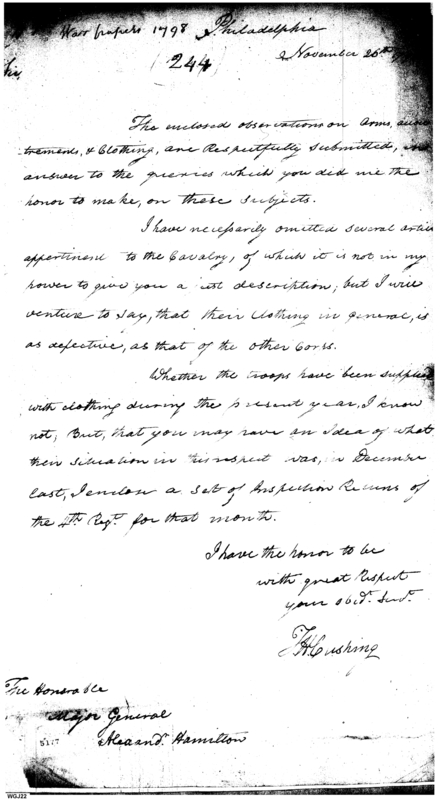 War papers 1798 Philadelphia
(244) November 26th
Sir,
The enclosed observations on arms, accou
trements, & Clothing, are Respectfully submitted, in
answer to the queries which you did me the
honor to make, on these subjects.
I have necessarily omitted several articles
appertinent to the Cavalry, of which it is not in my
power to give you a just description; but I will
venture to say, that their Clothing in general, is
as defective, as that of the other Corps.
Whether the troops have been supplied
with clothing during the present year, I know
not; But, that you may have an Idea of what
their situation in this respect was, in December
last, I enclose a set of Inspection Returns of
the 4th Regt. for that month.
I have the honor to be
with great Respect
your obedt. Servt.
T H Cushing
The Honorable
Major General
Alexandr. Hamilton
WGJ22